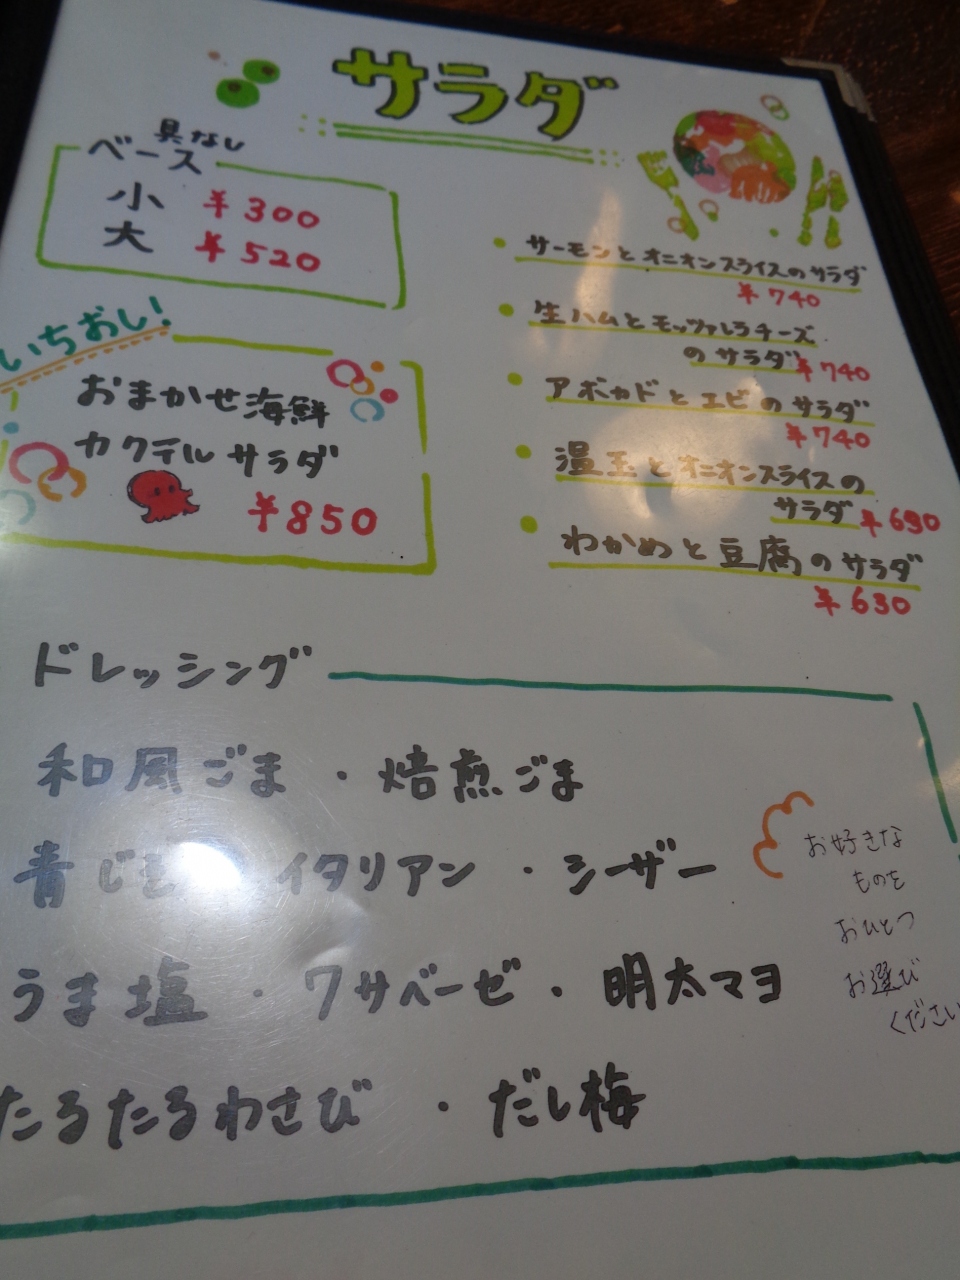 サラダ
具なし
ベース
小 ¥300
大 ¥520
いちおし!
おまかせ海鮮
カクテルサラダ
¥850
・サーモンとオニオンスライスのサラダ
¥740
・生ハムとモッツァレラチーズ
のサラダ ¥740
・アボカドとエビのサラダ
¥740
・温玉とオニオンスライスの
サラダ ¥630
・わかめと豆腐のサラダ
¥630
ドレッシング
和風ごま・焙煎ごま
青じそ イタリアン・シーザー
うま塩・ワサベーゼ・明太マヨ
たるたるわさび・だし梅
お好きな
ものを
おひとつ
お選び
ください